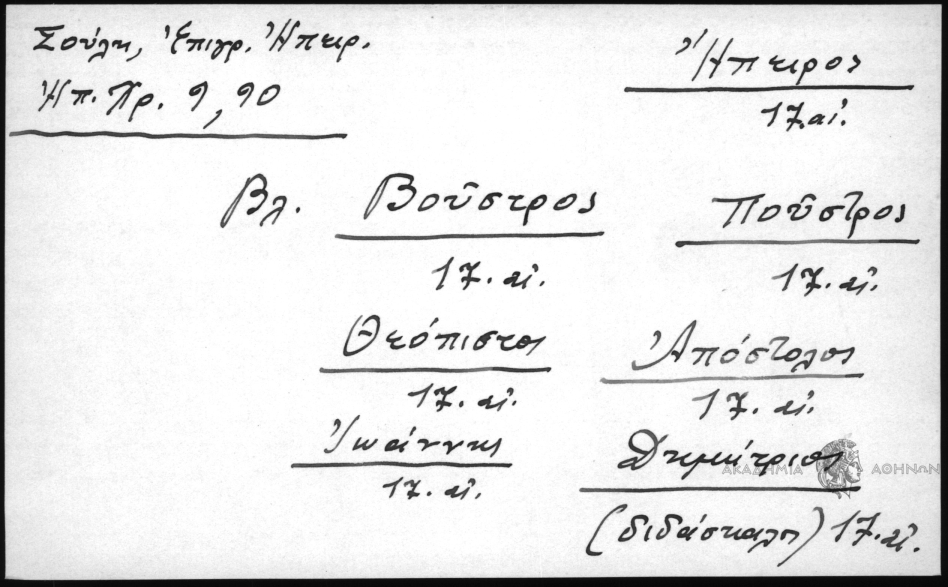 Σούλη, Ἐπιγρ. Ἠπειρ.
Ἠπ. Χρ. 9, 90
Ἤπειρος
17. αἰ.
Βλ. Βοῦστρος
17. αἰ.
Ποῦστρος
17. αἰ.
Θεόπιστος
17. αἰ.
Ἀπόστολος
17. αἰ.
Ἰωάννης
17. αἰ.
Δημήτριος
(διδάσκαλος) 17. αἰ.
ΑΚΑΔΗΜΙΑ ΑΘΗΝΩΝ